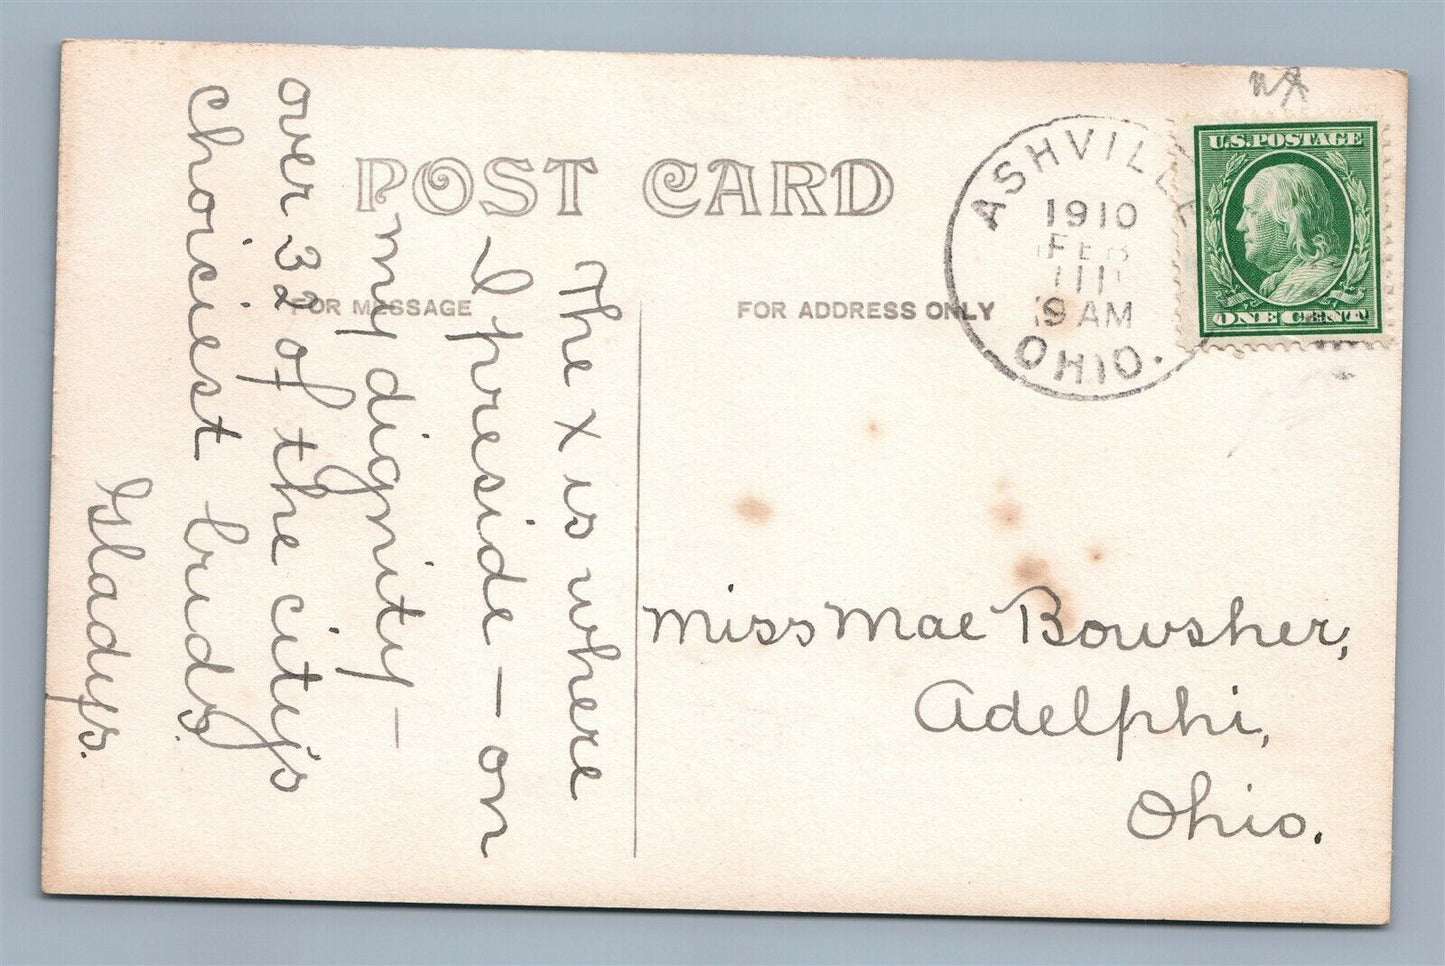 POST CARD
FOR MESSAGE
FOR ADDRESS ONLY
ASHVILLE
1910
FEB
11
9 AM
OHIO.
U.S. POSTAGE
ONE CENT
The X is where
I preside — on
my dignity —
over 32 of the city's
choiciest buds.
Gladys.
Miss Mae Bowsher,
Adelphi,
Ohio.